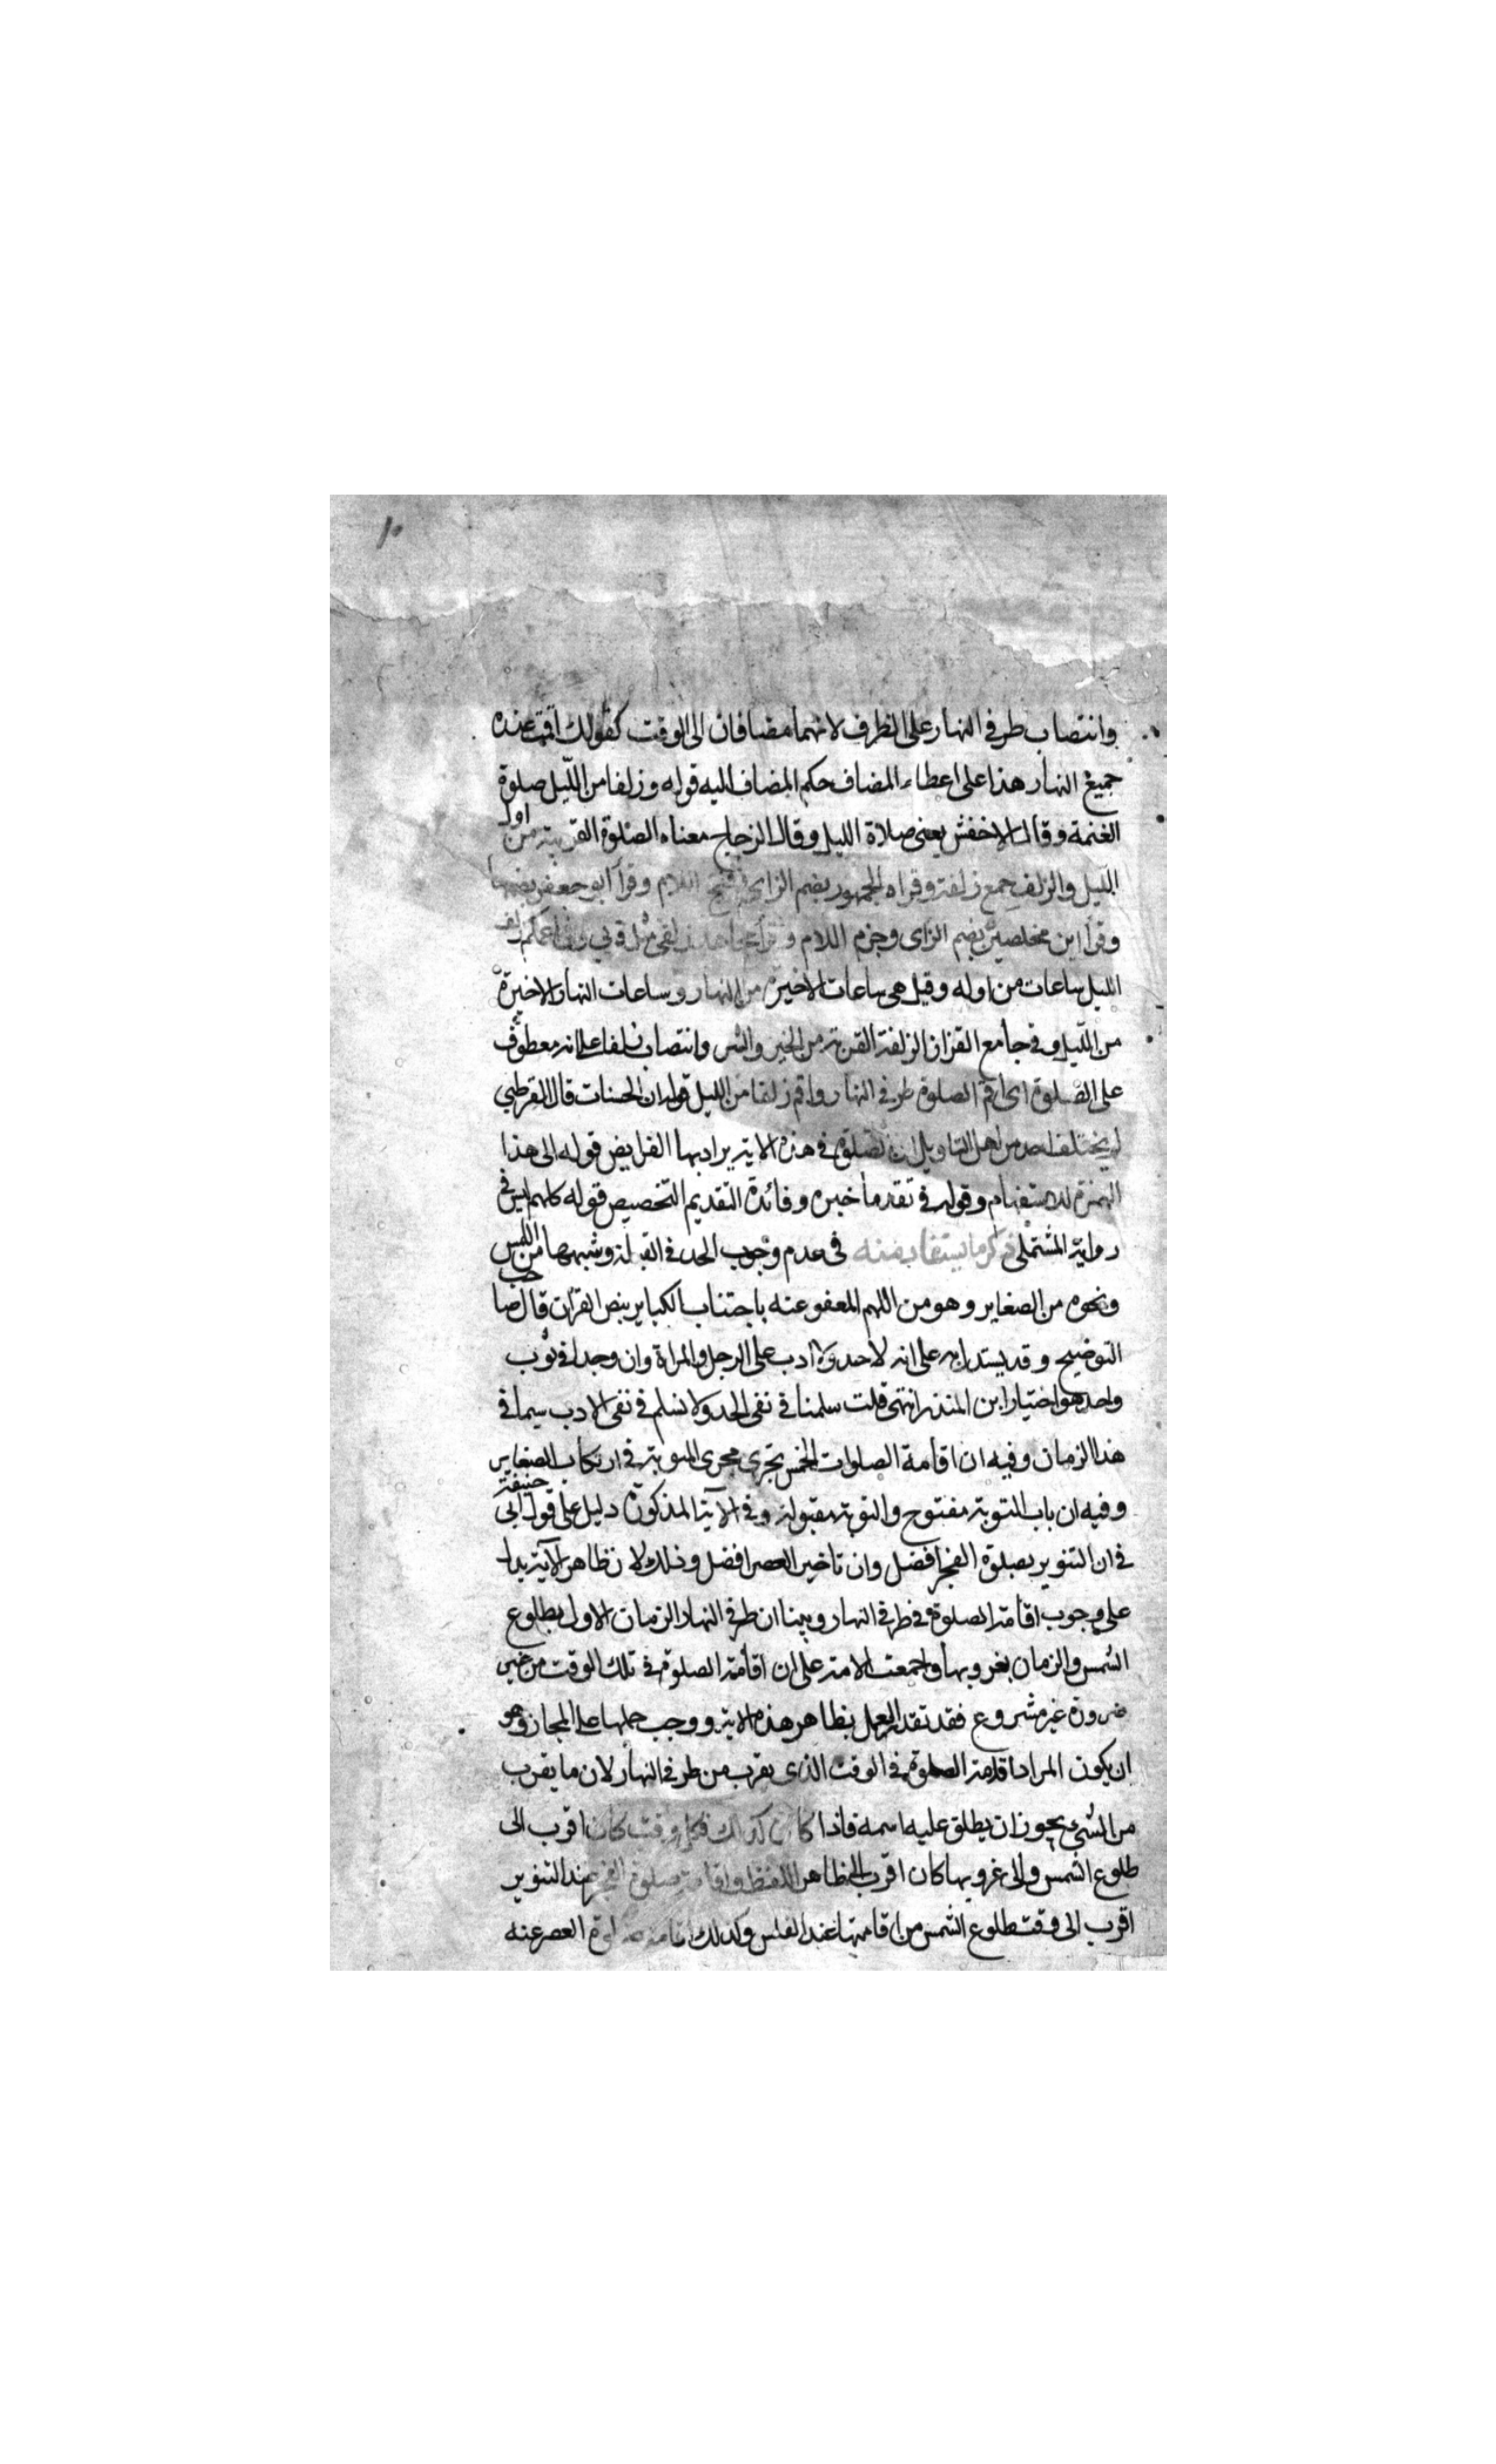 ١٠
وانتصاب طرفي النهار على الظرف لانهما مضافان الى الوقت كقولك اقمت عنده
جميع النهار هذا على اعطاء المضاف حكم المضاف اليه قوله وزلفا من الليل صلوة
الغتمة وقال الاخفش يعنى صلاة الليل وقال الزجاج معناه الصلوة القريبة من اول
الليل والزلف جمع زلفة وقراه الجمهور بضم الزاى وفتح اللام وقرأ ابو جعفر بضمها
وقرأ ابن محيصن بضم الزاى وجزم اللام وقرأ مجاهد زلفى مثل قربى زلف
الليل ساعات من اوله وقيل هى ساعات الاخيرة من النهار وساعات النهار الاخيرة
من الليل وفى جامع القزاز الزلفة القربة من الخير والشر وانتصاب زلفا على انه معطوف
على الصلوة اى اقم الصلوة طرفي النهار واقم زلفا من الليل قوله ان الحسنات قال القرطبي
لم يختلف احد من اهل التاويل ان الصلوة فى هذه الاية يراد بها الفرايض قوله الى هذا
الهمزة للاستفهام وقوله فى تقدم ما خبره وفائدة التقديم التخصيص قوله كلهم ليس فى
رواية المشتملى ذكر ما يستفاد منه فى عدم وجوب الحد فى القبلة وشبهها من اللمس
ونحوه من الصغاير وهو من اللهم المعفو عنه باجتناب الكباير بنص القران قال صاحب
التوضيح وقد يستدل به على انه لا حد ولا ادب على الرجل والمراة وان وجدا فى ثوب
واحد هو اختيار ابن المنذر انتهى قلت سلمنا فى نفى الحد ولا نسلم فى نفى الادب سيما فى
هذا الزمان وفيه ان اقامة الصلوات الخمس تجرى مجرى التوبة فى ارتكاب الصغاير
وفيه ان باب التوبة مفتوح والتوبة مقبولة وفى الآية المذكورة دليل على قول ابى حنيفة
فى ان التنوير بصلوة الفجر افضل وان تاخير العصر افضل وذلك لان ظاهر الآية يدل
على وجوب اقامة الصلوة فى طرفي النهار وبينا ان طرفي النهار الزمان الاول بطلوع
الشمس والزمان بغروبها واجمعت الامة على ان اقامة الصلوة فى تلك الوقت من غير
ضرورة غير مشروع فقد تعذر العمل بظاهر هذه الاية ووجب حملها على المجاز وهو
ان يكون المراد اقامة الصلوة فى الوقت الذى يقرب من طرفي النهار لان ما يقرب
من الشئ يجوز ان يطلق عليه اسمه فاذا كان كذلك فكل وقت كان اقرب الى
طلوع الشمس والى غروبها كان اقرب الى ظاهر اللفظ واقامة صلوة الفجر عند التنوير
اقرب الى وقت طلوع الشمس من اقامتها عند الغلس وكذلك اقامة صلوة العصر عنه